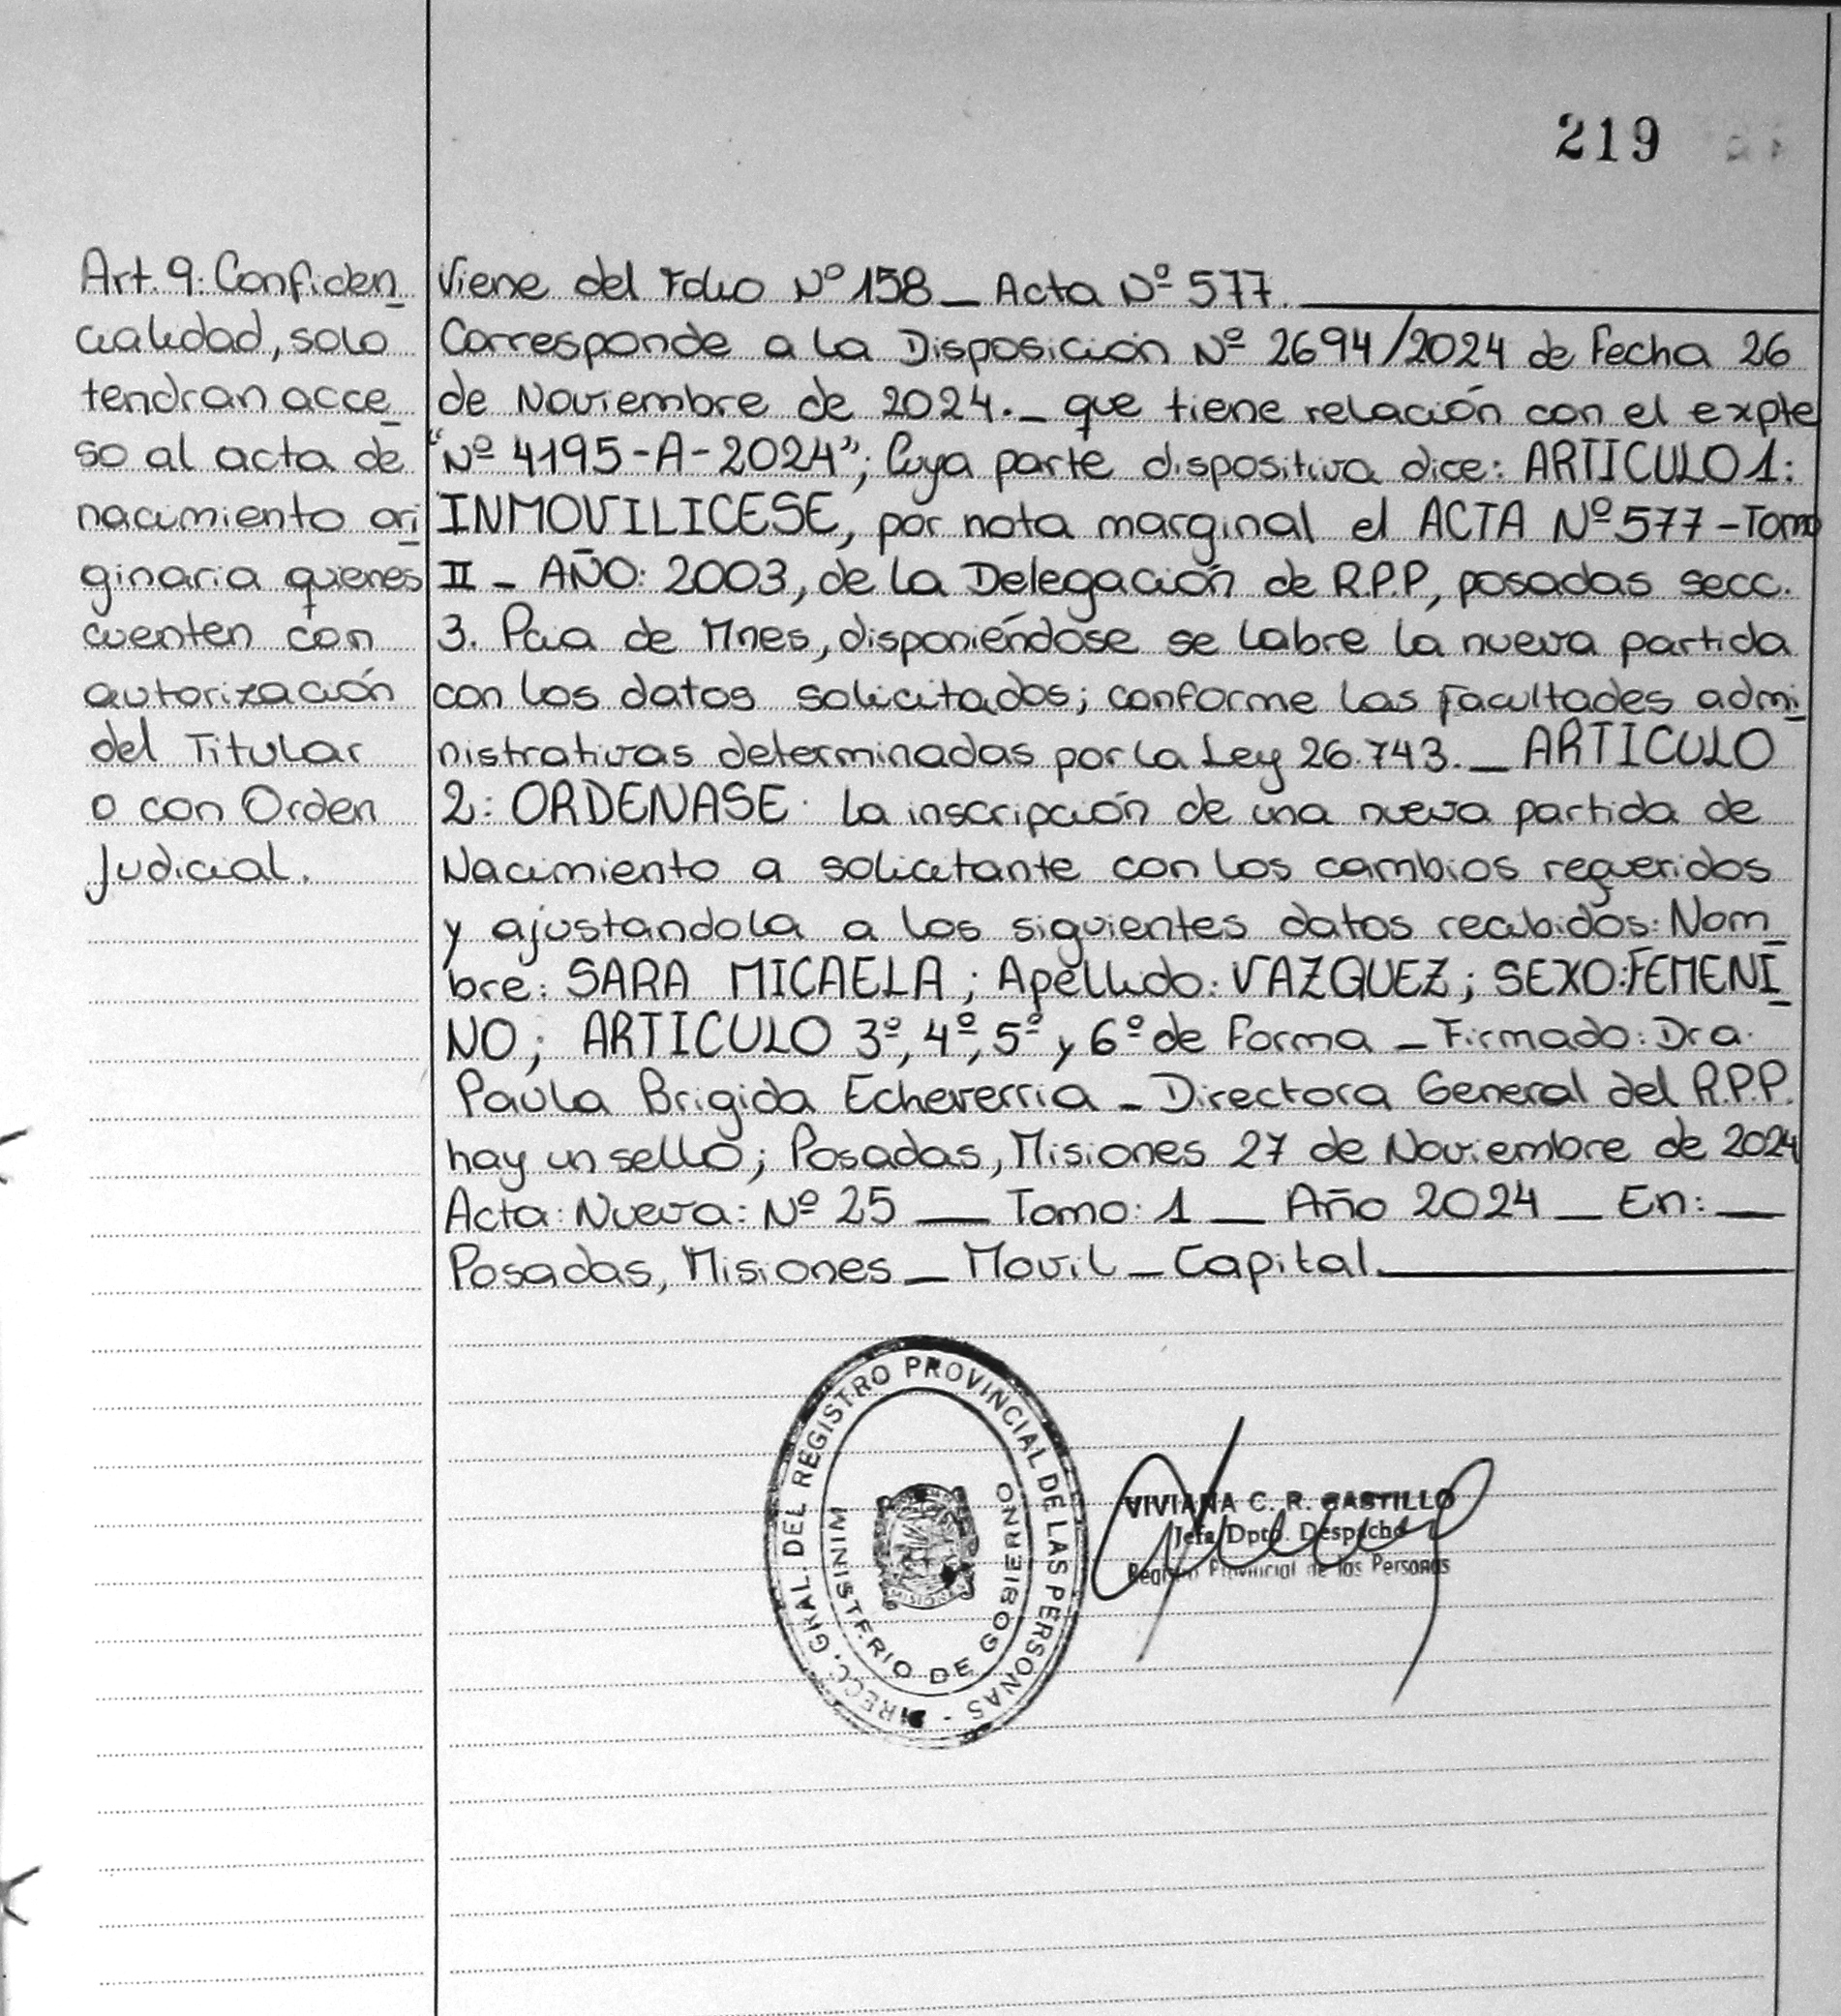 219
Art. 9: Confiden
cialidad, solo
tendran acce
so al acta de
nacimiento ori
ginaria quienes
cuenten con
autorización
del Titular
o con Orden
Judicial.
Viene del Folio Nº 158 _ Acta Nº 577.
Corresponde a la Disposición Nº 2694/2024 de Fecha 26
de Noviembre de 2024._ que tiene relación con el expte
"Nº 4195-A-2024"; Cuya parte dispositiva dice: ARTICULO 1:
INMOVILICESE, por nota marginal el ACTA Nº 577 - Tomo
II - AÑO: 2003, de la Delegación de R.P.P, posadas secc.
3. Pcia de Mnes, disponiéndose se labre la nueva partida
con los datos solicitados; conforme las facultades admi
nistrativas determinadas por la Ley 26.743._ ARTICULO
2: ORDENASE la inscripción de una nueva partida de
Nacimiento a solicitante con los cambios requeridos
y ajustandola a los siguientes datos recibidos: Nom
bre: SARA MICAELA; Apellido: VAZQUEZ; SEXO: FEMENI
NO; ARTICULO 3º, 4º, 5º y 6º de Forma _ Firmado: Dra.
Paula Brigida Echeverria _ Directora General del R.P.P.
hay un sello; Posadas, Misiones 27 de Noviembre de 2024
Acta: Nueva: Nº 25 __ Tomo: 1 _ Año 2024 _ En: __
Posadas, Misiones _ Movil _ Capital.
DIRECC. GRAL. DEL REGISTRO PROVINCIAL DE LAS PERSONAS -
MINISTERIO DE GOBIERNO
MISIONES
VIVIANA C. R. CASTILLO
Jefa Dpto. Despacho
Registro Provincial de las Personas